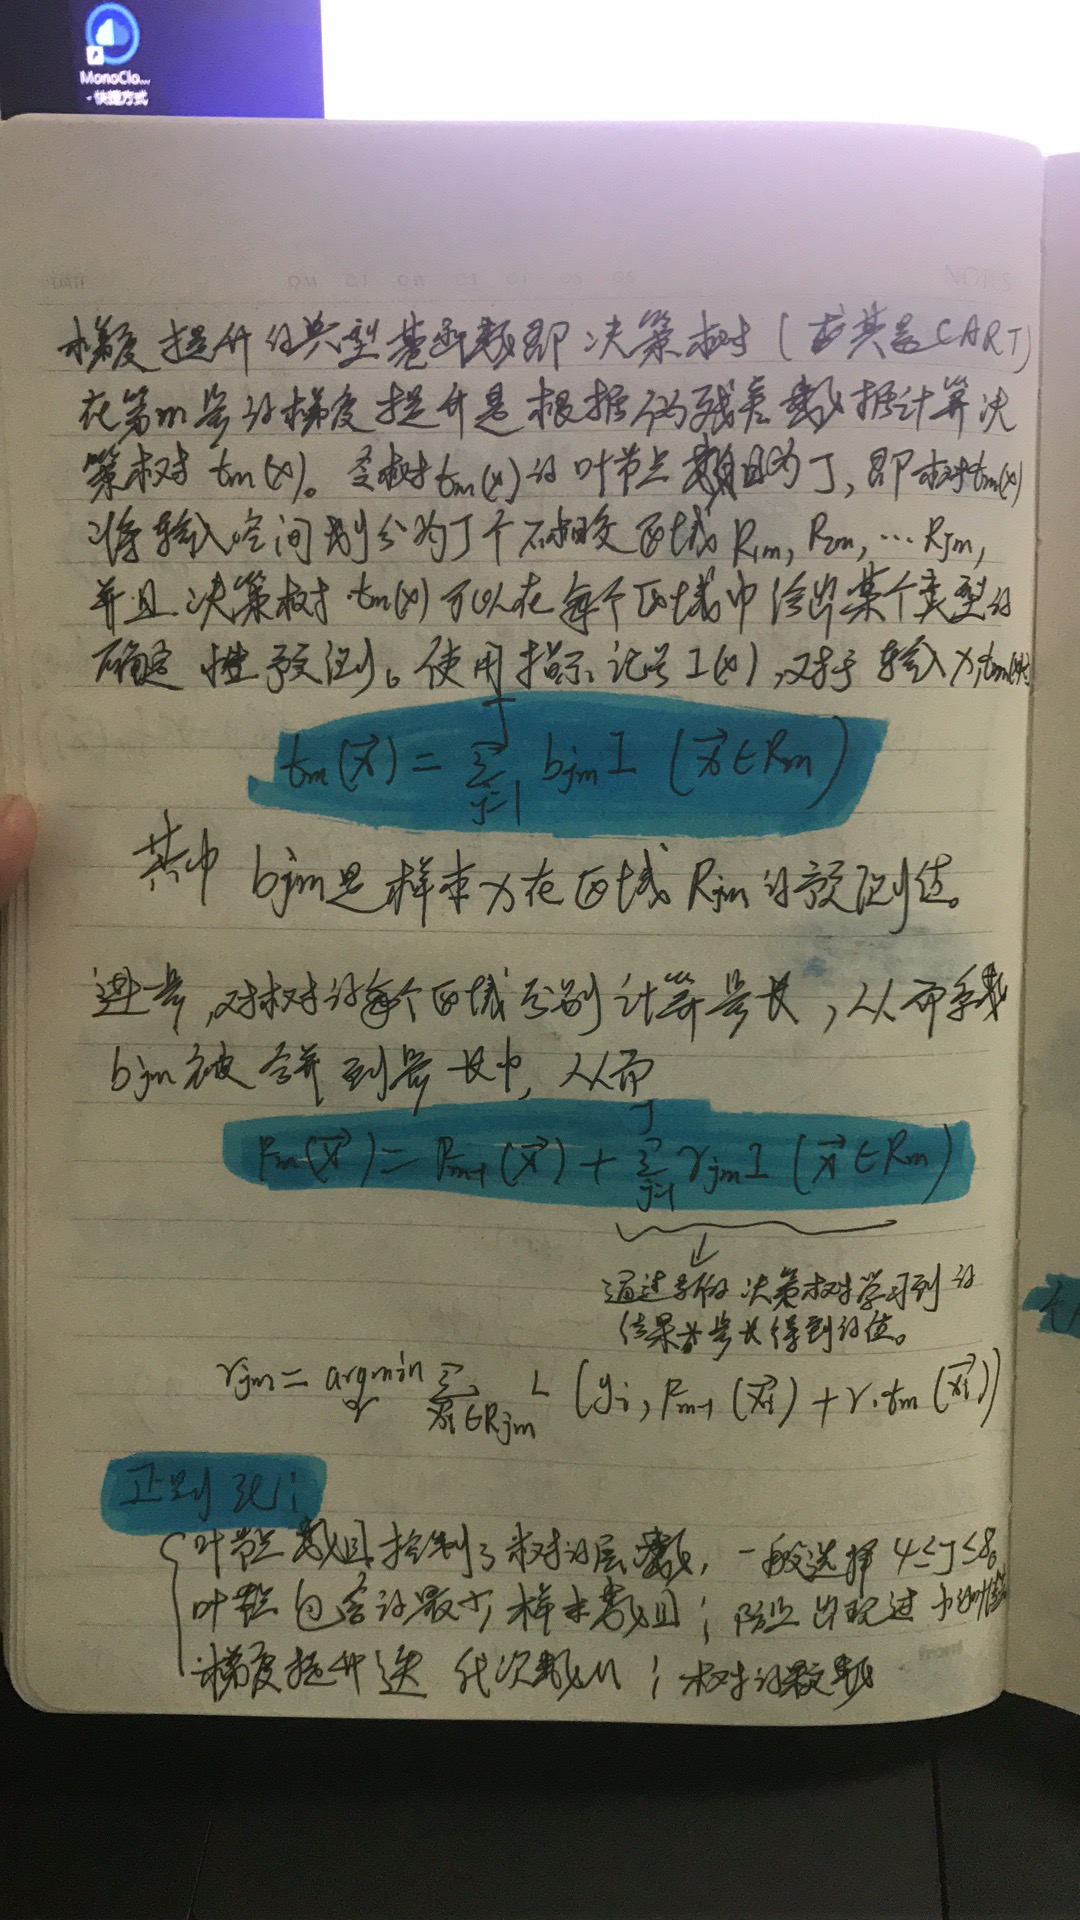 MonoClo...
- 快捷方式
NOTES
梯度提升的典型基函数即决策树(尤其是CART)
在第m步的梯度提升是根据伪残差数据计算决
策树 tm(x)。令树tm(x)的叶节点数目为J，即树tm(x)
将输入空间划分为J个不相交区域 R1m, R2m, … RJm,
并且决策树 tm(x) 可以在每个区域中给出某个类型的
确定性预测。使用指示记号 I(x),对于输入x,tm(x)为
tm(x⃗) = Σ_{j=1}^{J} bjm I (x⃗ ∈ Rm)
其中 bjm是样本x在区域 Rjm的预测值。
进一步,对树的每个区域分别计算步长,从而系数
bjm被合并到步长中,从而
Fm(x⃗) = Fm-1(x⃗) + Σ_{j=1}^{J} γjm I (x⃗ ∈ Rm)
通过新的决策树学习到的
结果×步长得到的值。
γjm = argmin_γ Σ_{xi∈Rjm} L (yi, Fm-1 (x⃗i) + γ·tm (x⃗i))
正则化:
叶节点数目控制了树的层数,一般选择 4≤J≤8。
叶节点包含的最少样本数目;防止出现过小的叶节点
梯度提升迭代次数M;树的数
front